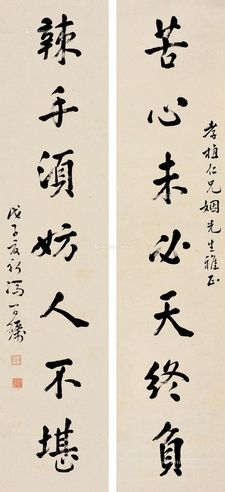 孝植仁兄姻先生雅正
苦心未必天终負
辣手須妨人不堪
戊子夏初馮百鍊